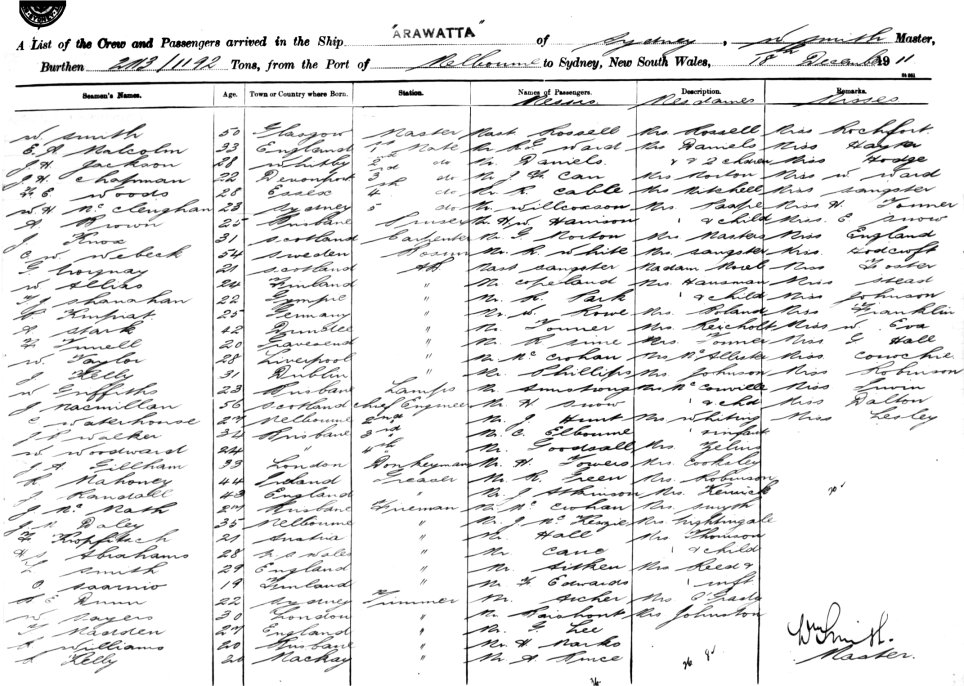 "ARAWATTA"
A List of the Crew and Passengers arrived in the Ship of Sydney, W Smith Master,
Burthen 2113/1192 Tons, from the Port of Melbourne to Sydney, New South Wales, 18th December 1911
Seamen's Names. Age. Town or Country where Born. Station. Names of Passengers. Description. Remarks.
Messrs Mesdames Misses
W Smith 50 Glasgow Master Mast Rossell Mrs Rossell Miss Rochfort
E. A. Malcolm 33 England 1st Mate Mr R G Ward Mrs Daniels Miss
J H Jackson 28 Whitby 2nd do Mr Daniels & 2 children Miss Hodge
J. H. Chapman 22 Devonport 3rd do Mr J F Can Mrs Norton Miss W Ward
F E Woods 28 Essex 4th do Mr R Cable Mrs Mitchell Miss Sangster
W H McClenghan 23 Sydney 5 do Mr Willcoxson Mrs Miss H Tonner
A Brown 25 Brisbane Purser Mr H W Harrison 1 & child Miss E Snow
J Knox 31 Scotland Carpenter Mr G Norton Mrs Masters Miss England
C W Webeck 54 Sweden Bosun Mr R White Mrs Sangster Miss Hodcroft
G 21 Scotland AB Mast Sangster Madam Miss Foster
W 24 Finland " Mr Copeland Mrs Hansman Miss Stead
T J Shanahan 22 Gympie " Mr K Park 1 & child Miss Johnson
25 Germany " Mr W Rowe Mrs Boland Miss Franklin
A Stark 42 Dundee " Mr Tonner Mrs Miss W Eva
F Tunell 20 Gravesend " Mr R Sime Mrs Tonner Miss G Hall
W. Taylor 28 Liverpool " Mr McCrohan Mrs Miss Conochie
J Kelly 31 Dublin " Mr Phillips Mrs Johnson Miss Robinson
W Griffiths 23 Brisbane Lamps Mr Armstrong Mrs McConville Miss Irwin
J Macmillan 56 Scotland Chief Engineer Mr H Snow 1 & chd Miss Dalton
C Waterhouse 27 Melbourne 2nd " Mr J Hunt Mrs Whiting Miss Lesley
J F Walker 34 Brisbane 3rd " Mr C Elbourne 1 infant
W Woodward 24 " 4th " Mr Goodsall Mrs
J. A. Gillham 33 London Donkeyman Mr H Towers Mrs Cooksley
R Mahoney 44 Ireland Greaser Mr R Green Mrs Robinson
J Randall 43 England " Mr J Atkinson Mrs Kenrick
J McMath 27 Brisbane Fireman Mr McCrohan Mrs Smyth
J P Daley 35 Melbourne " Mr J McKenzie Mrs Nightingale
F 21 Austria " Mr Hall Mrs Thomson
H S Abrahams 28 N S Wales " Mr Cane 1 & child
L Smith 29 England " Mr Aitken Mrs Reed &
O Saarnio 19 Finland " Mr F Edwards 1 inft
A E Dunn 22 Sydney Trimmer Mr Archer Mrs O'Grady
W Sayers 30 London " Mr Mrs Johnston
T Madden 27 England " Mr G Lee
A Williams 20 Brisbane " Mr H Marks
A Kelly 20 Mackay " Mr A Vince
Wm Smith.
Master.